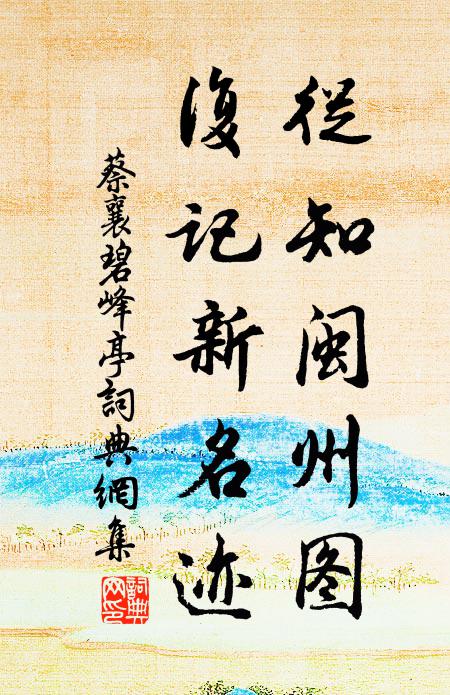 從知闽州图
復记新名迹
蔡襄碧峰亭詞典網集